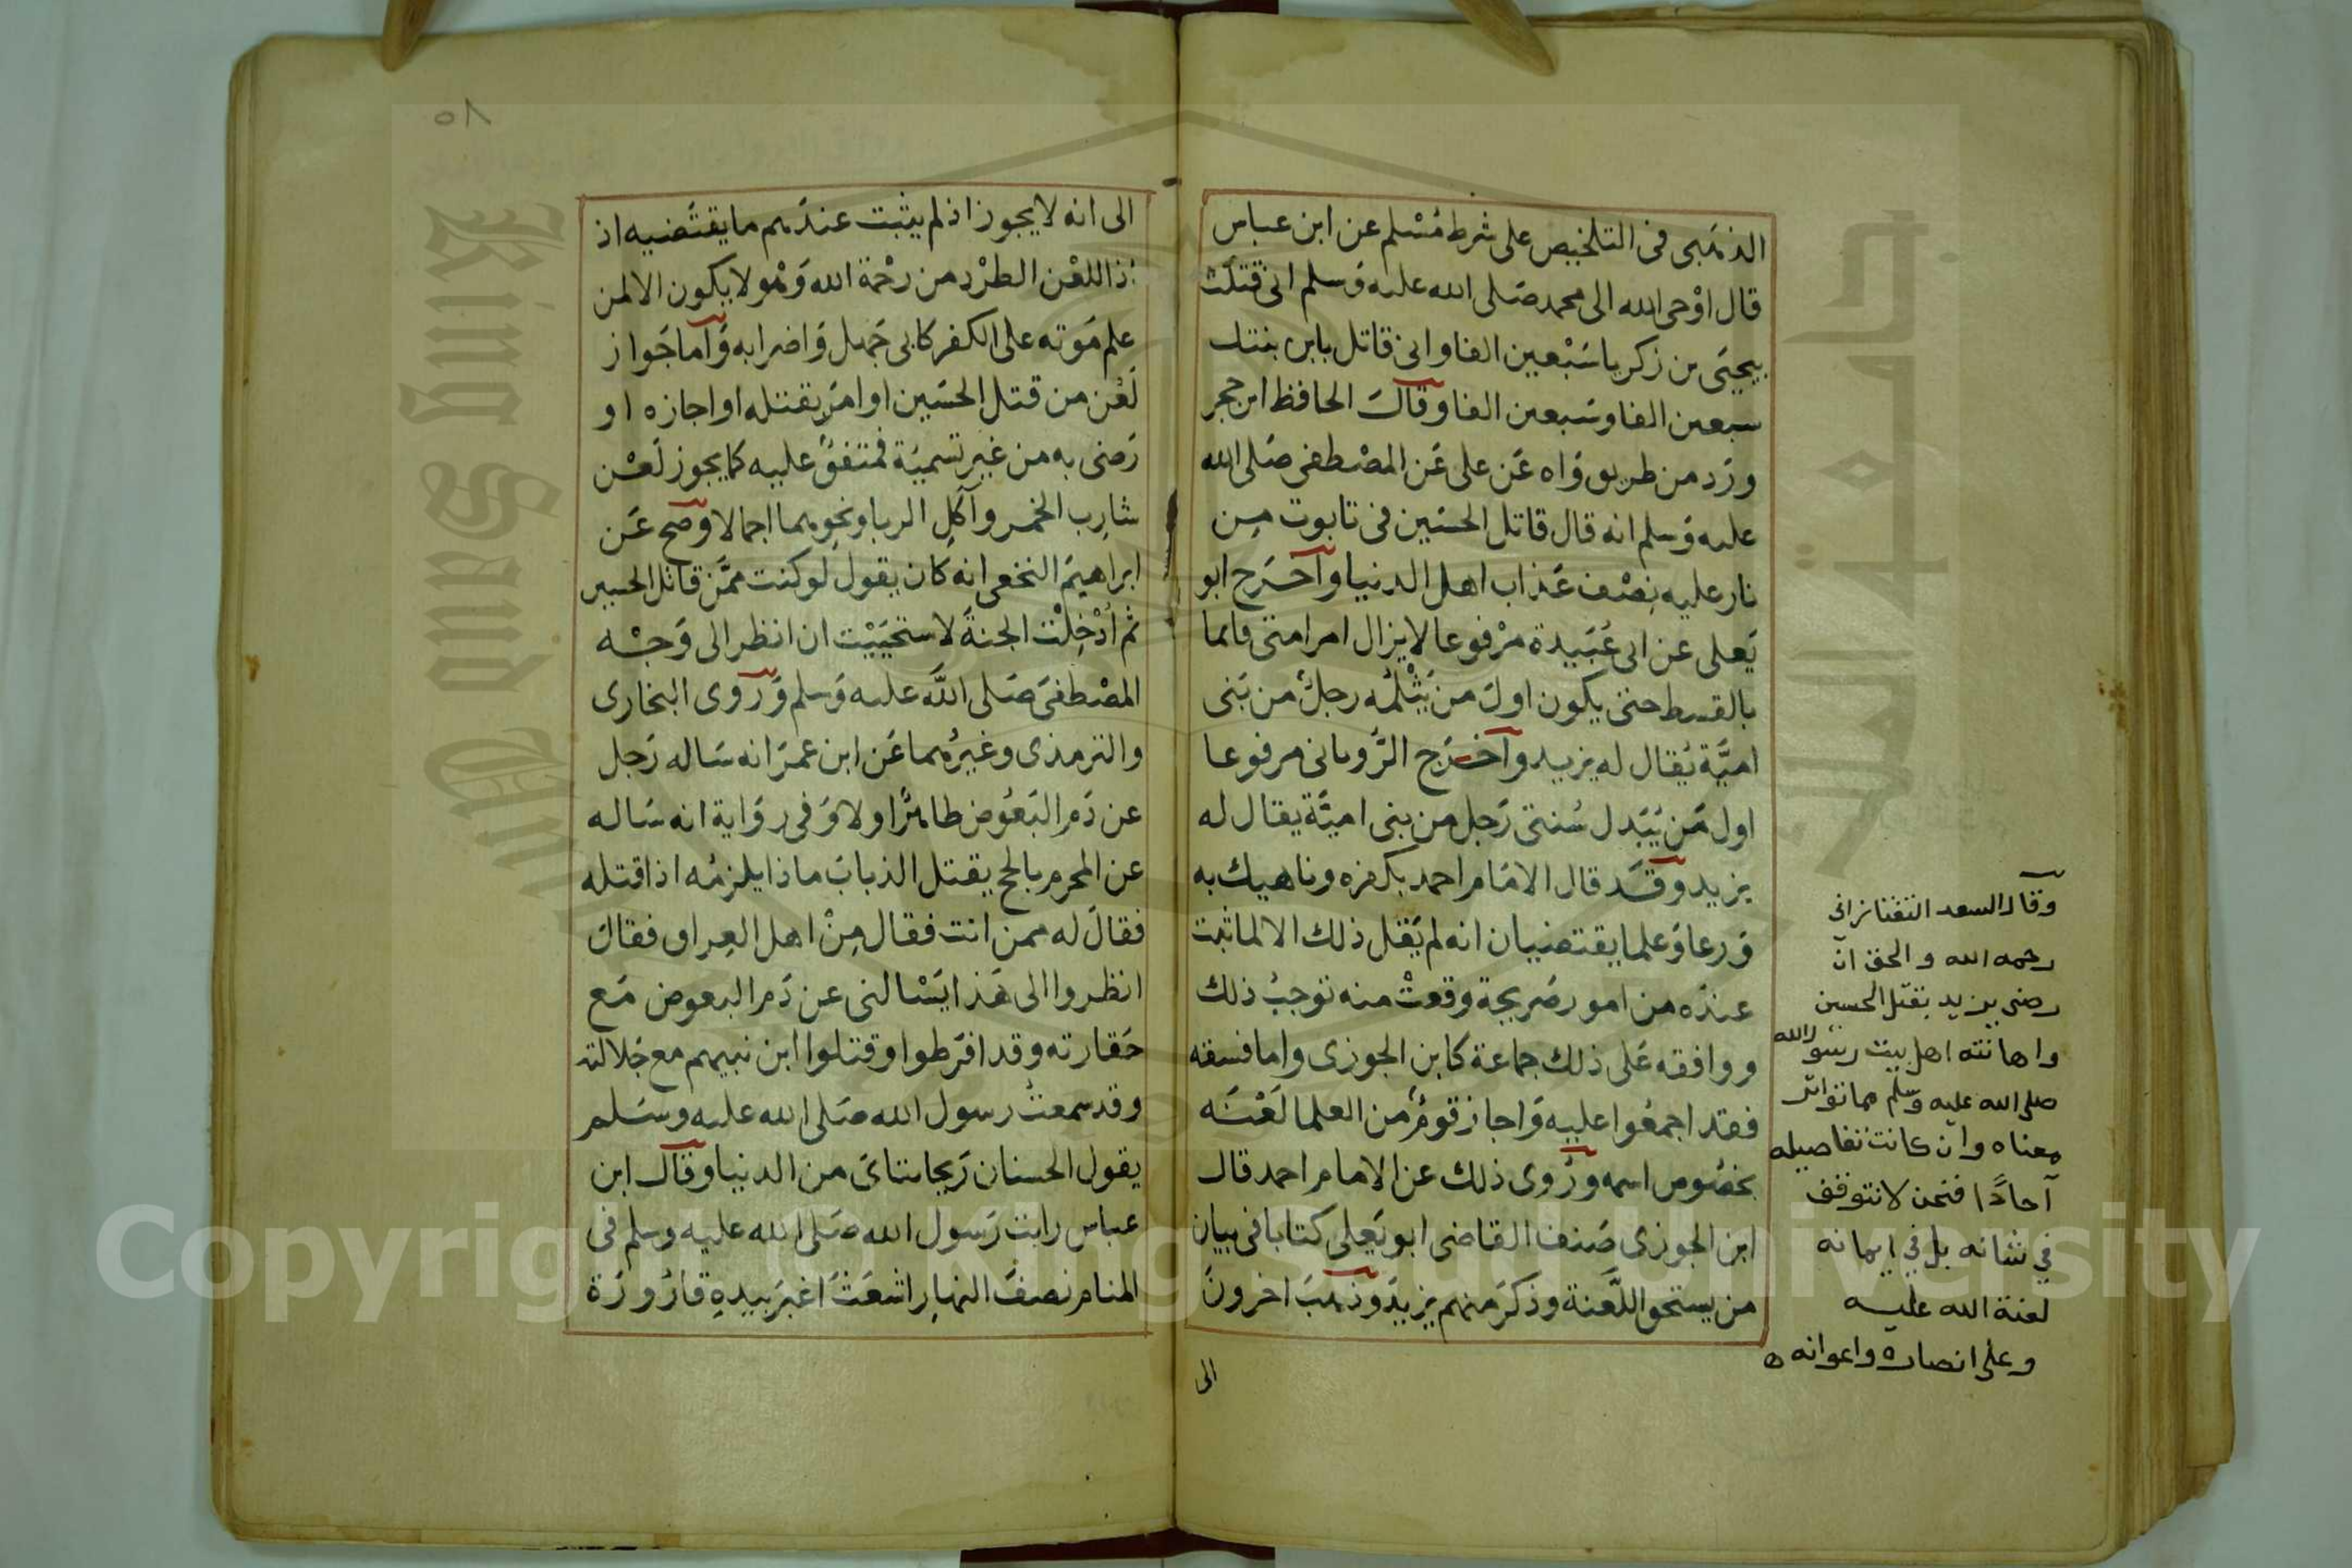 الذهبى فى التلخيص على شرط مُسْلم عن ابن عباس
قال اوْحى الله الى محمد صَلى الله عليه وَسلم انى قتلت
بيحيَى بن زكريا سَبْعين الفا وانى قاتل بابن بنتك
سبعين الفا وسَبعين الفا وقال الحافظ ابن حجر
ورَد من طريق وَاه عَن على عَن المصْطفى صَلى الله
عليه وَسلم انه قال قاتل الحسَين فى تابوت من
نار عليه نِصْف عَذاب اهل الدنيا واخرَج ابو
يَعلى عن ابى عُبَيدة مرْفوعا لا يزال امر امتى قائما
بالقسط حتى يكون اولَ من يَثْلمُه رجلٌ من بَنى
اميَّة يُقال له يزيد واخرَج الرُّويانى مرفوعا
اول مَن يُبَدل سُنتى رَجل من بنى اميَّة يقال له
يزيد وقَد قال الامَام احمد بكفره وناهيك به
وَرعا وَعلما يقتضيان انه لم يَقل ذلك الا لما ثبت
عندَه من امور صَريحة وقعتْ منه توجبُ ذلك
ووافقه عَلى ذلك جماعة كابن الجوزى واما فسقه
فقد اجمعُوا عليه وَاجاز قومٌ من العلما لَعْنَه
بخصُوص اسمه ورُوى ذلك عن الامام احمد قال
ابن الجوزى صَنف القاضى ابو يَعلى كتابا فى بيان
من يستحق اللَّعنة وذكرَ منهم يزيدَ وَذهبَ اخرونَ
الى
وقال السعد التفتازانى
رحمه الله والحق ان
رضى يزيد بقتل الحسين
واهانته اهل بيت رسول الله
صلى الله عليه وسلم مما تواتر
معناه وان كانت تفاصيله
آحادًا فنحن لا نتوقف
في شانه بل في ايمانه
لعنة الله عليه
وعلى انصاره واعوانه ه
٥٨
الى انه لا يجوز اذ لم يثبت عندَهم ما يقتَضيه اذ
ذا اللعْن الطرْد من رحْمة الله وَهْو لا يكون الا لمن
علم مَوته على الكفر كابى جَهل وَاضرابه وَاما جَواز
لَعْن من قتل الحسَين او امَر بقتله او اجازه او
رَضى به من غير تسميَة فمتفقٌ عليه كما يجوز لَعْن
شارِب الخمر وآكلِ الربا ونحوِهما اجمالا وصَح عَن
ابراهيمَ النخعى انه كان يقول لو كنت ممَّن قاتل الحسين
ثم اُدْخِلْت الجنةَ لاستحيَيْت ان انظر الى وَجْه
المصْطفىَ صَلى اللَّه عليه وَسلم وَرَوى البخارى
والترمذى وغيرُهما عَن ابن عمرَ انه سَاله رَجل
عن دَم البَعُوض طاهرٌ او لا وَفى رِوَاية انه سَاله
عن المحرم بالحج يقتل الذبابَ ماذا يلزمُه اذا قتله
فقالَ له ممن انت فقال مِنْ اهل العِراق فقالَ
انظروا الى هَذا يَسْالنى عن دَم البعوض مَع
حَقارته وقد افرَطوا وقتلوا ابن نبيهم مع جَلالته
وقد سمعتُ رسول الله صَلى الله عليه وسَلم
يقول الحسنان رَيحانتاىَ من الدنيا وقال ابن
عباس رايت رَسول الله صَلى الله عليه وسلم فى
المنام نصفَ النهارِ اشعَثَ اغبَر بيدهِ قارُورَة
King Saud
Copyright © King Saud University